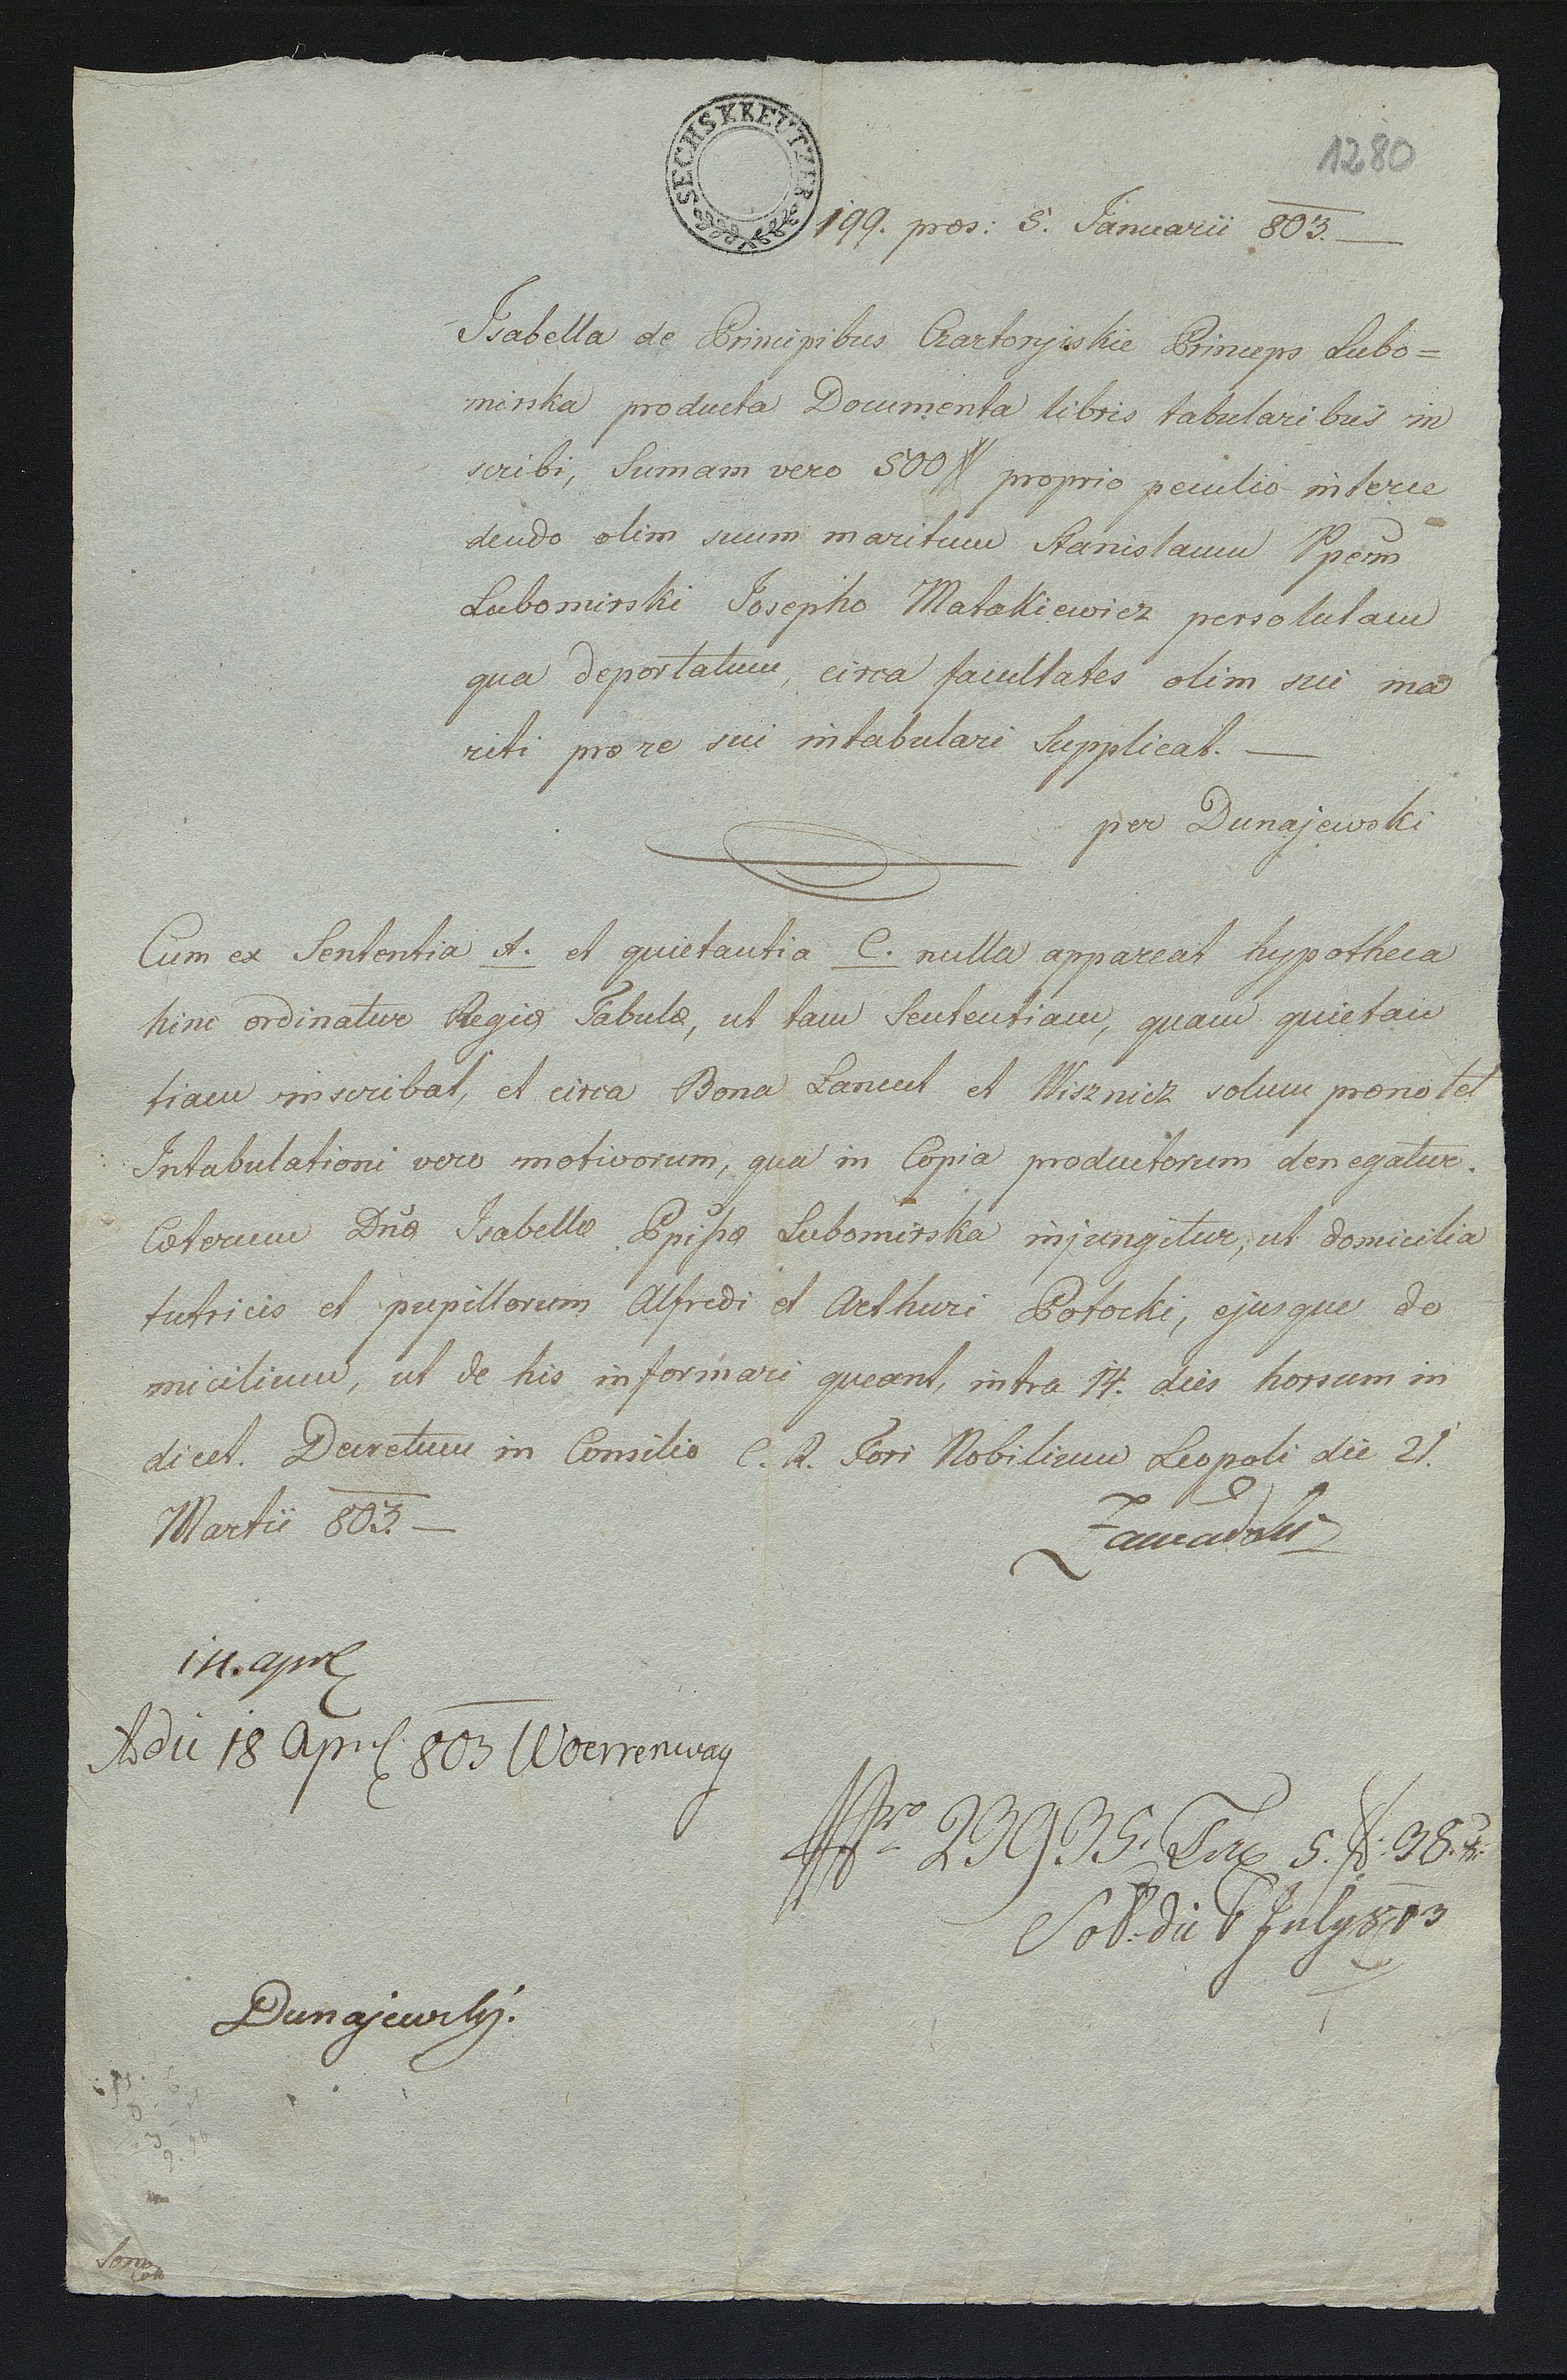 SECHS KREUTZER
1280
199. præs: 5. Januarii 803.
Isabella de Principibus Czartoryiskie Princeps Lubo=
mirska producta Documenta libris tabularibus in
scribi, Sumam vero 500 # proprio peculio interce
dendo olim suum maritum Stanislaum Ppem
Lubomirski Josepho Matakiewicz persolutam
qua deportatum, circa facultates olim sui ma
riti pro re sui intabulari Supplicat.
per Dunajewski
Cum ex Sententia A. et quietantia C. nulla appareat hypotheca
hinc ordinatur Regiæ Tabulæ, ut tam Sententiam, quam quietan
tiam inscribat, et circa Bona Lancut et Wisznicz solum prænotet
Intabulationi vero motivorum, qua in Copia productorum denegatur.
Cæterum Dnæ Isabellæ Ppissæ Lubomirska injungitur, ut domicilia
tutricis et pupillorum Alfredi et Arthuri Potocki, ejusque do
micilium, ut de his informari queant, intra 14. dies horsum in
dicet. Decretum in Consilio C. R. Fori Nobilium Leopoli die 21.
Martii 803.
14. apr
A die 18 Apr 803
23935. Tax 5. f. 38. x.
Sol. die 6 July 803
Dunajewsky.